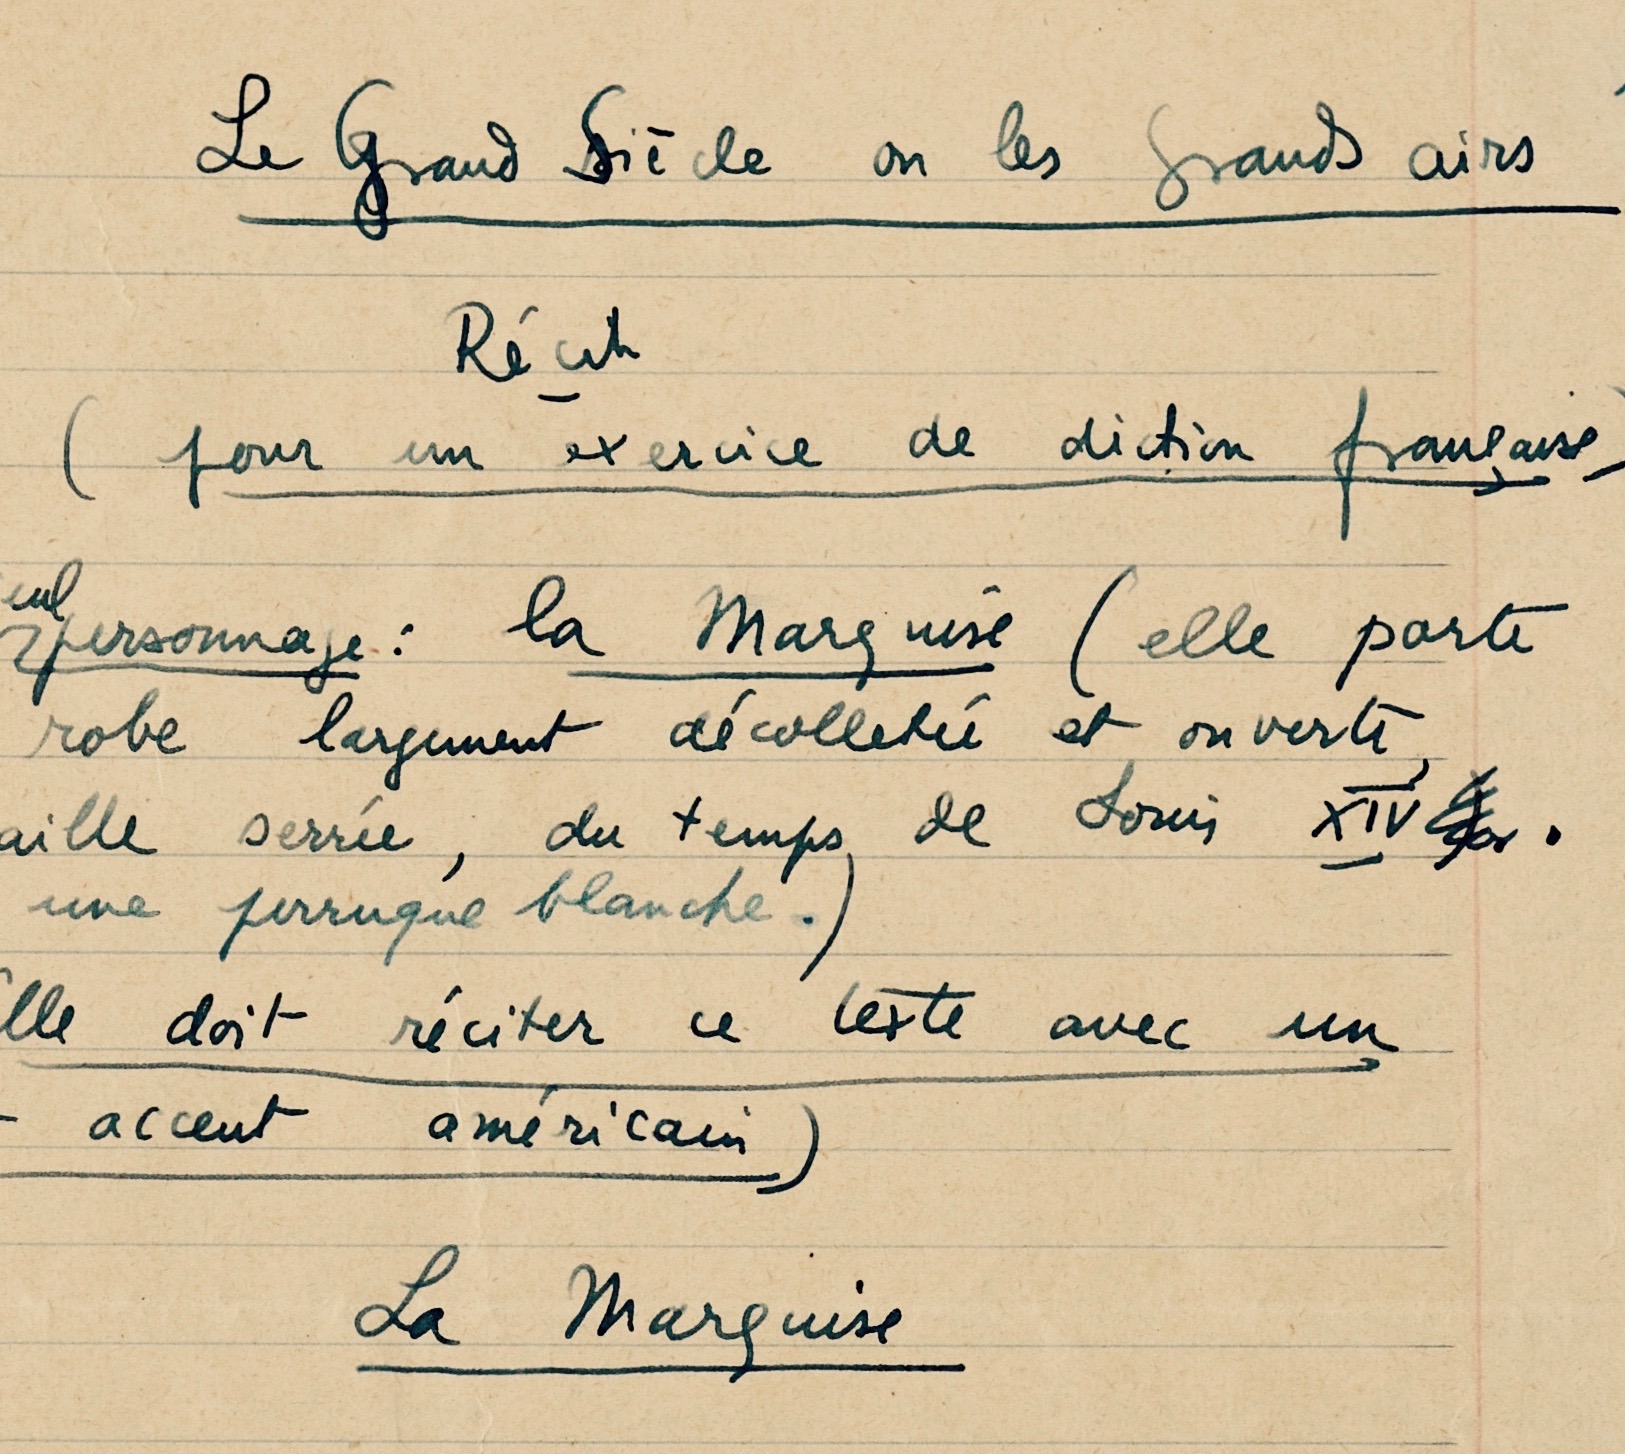 Le Grand Siècle ou les grands airs
Récit
(pour un exercice de diction française)
eul
personnage : la Marquise (elle porte
robe largement décolletée et ouverte,
aille serrée, du temps de Louis XIV.
une perruque blanche.)
lle doit réciter ce texte avec un
accent américain)
La Marquise